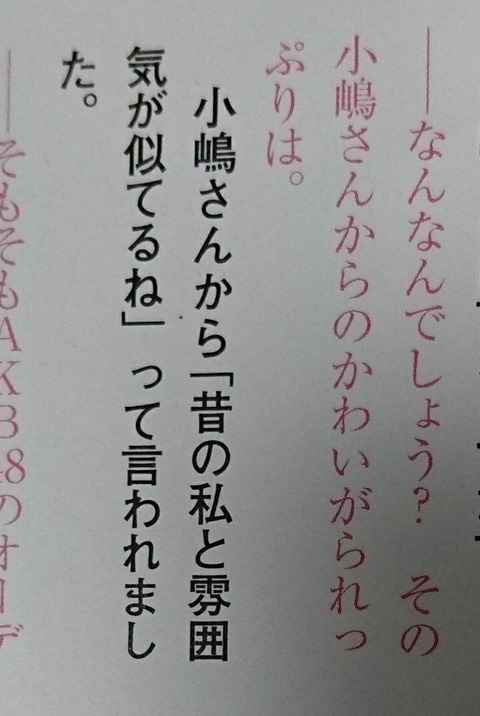 ――なんなんでしょう？　その
小嶋さんからのかわいがられっ
ぷりは。
小嶋さんから「昔の私と雰囲
気が似てるね」って言われまし
た。
――そもそもAKB48のオーデ